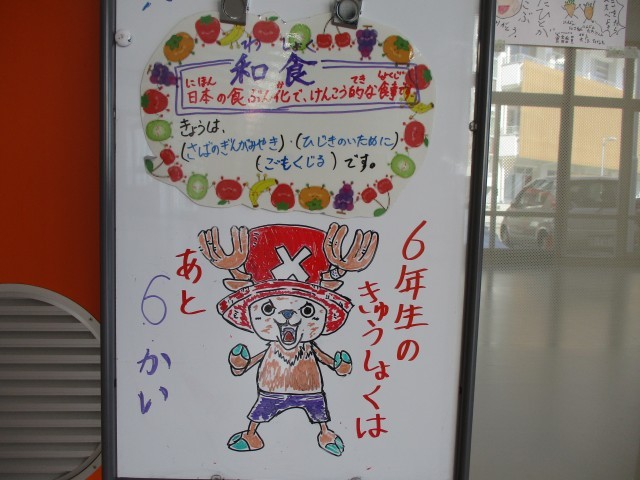 わ しょく
和食
にほん てき しょくじ
日本の食ぶん化で、けんこう的な食事です
きょうは、
(さばのぎんがみやき)・(ひじきのいために)
(ごもくじる)です。
6年生の
きゅうしょくは
あと
6かい